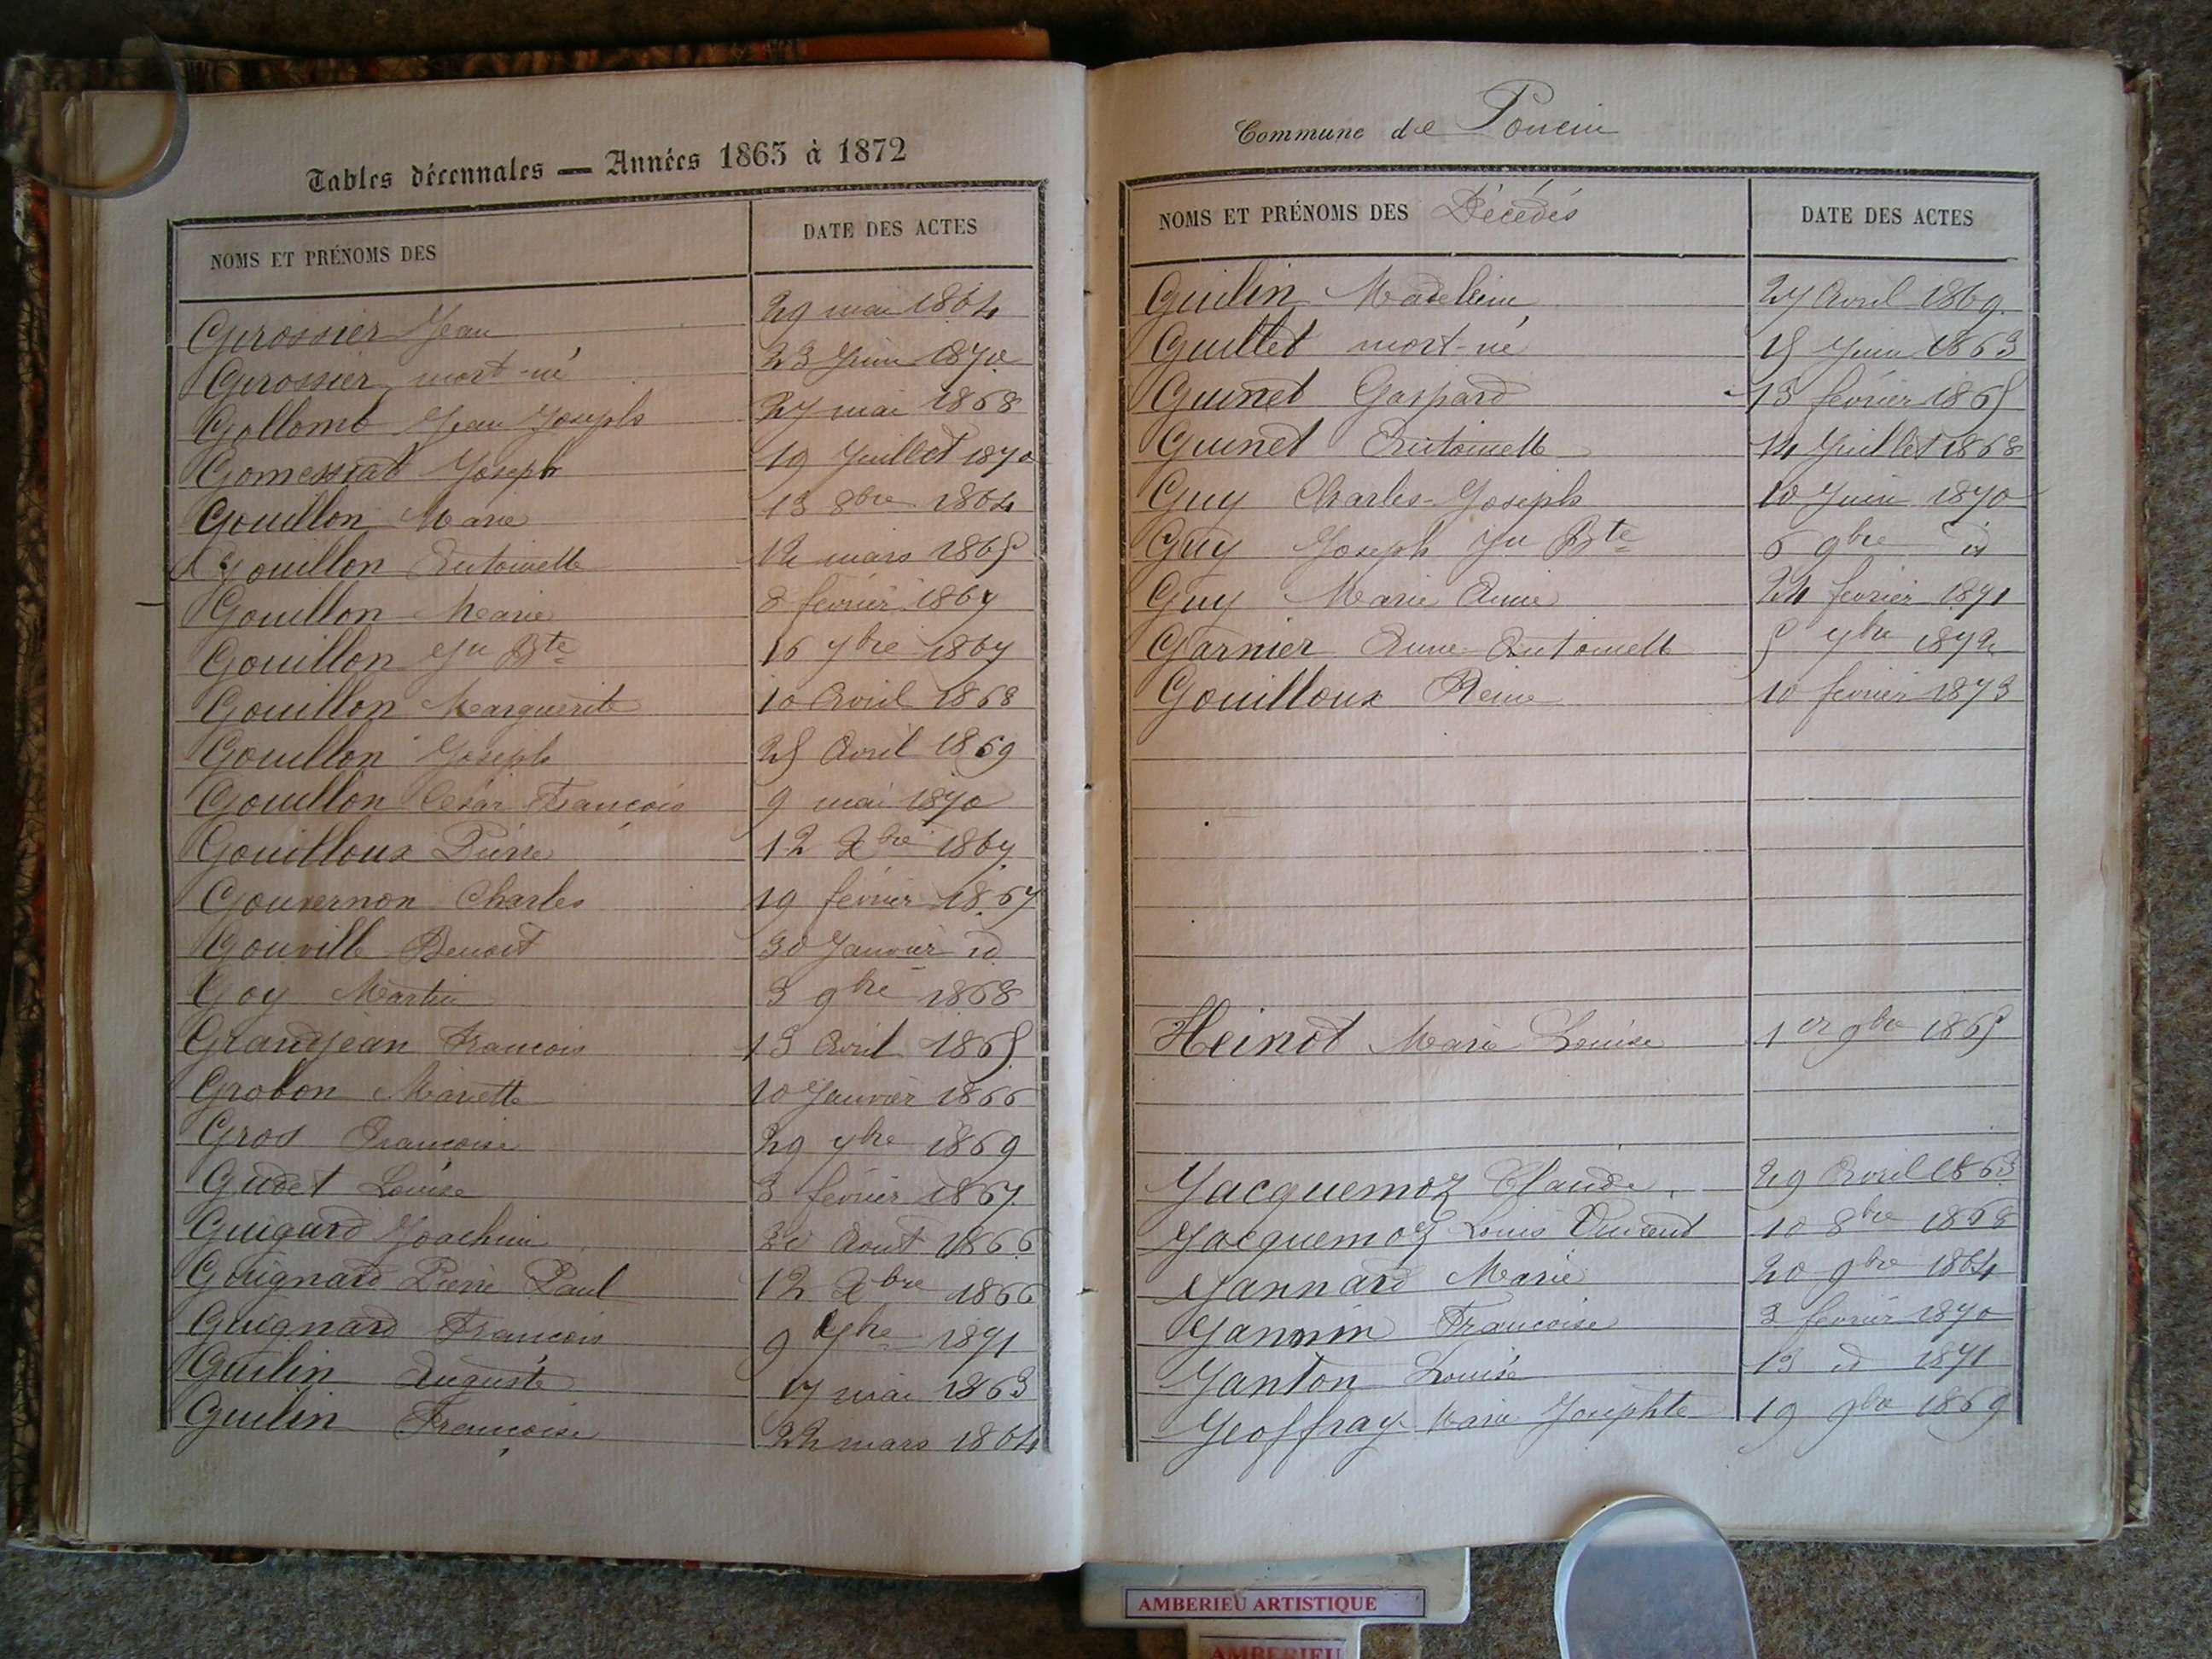 Tables décennales — Années 1863 à 1872
NOMS ET PRÉNOMS DES DATE DES ACTES
Girossier Jean 29 mai 1864
Girossier mort-né 23 Juin 1870
Gollomb Jean Joseph 27 mai 1868
Gomessiat Joseph 19 Juillet 1870
Gouillon Marie 13 8bre 1864
Gouillon Antoinette 12 mars 1865
Gouillon Marie 8 février 1867
Gouillon Jn Bte 16 7bre 1867
Gouillon Marguerite 10 Avril 1868
Gouillon Joseph 25 Avril 1869
Gouillon César François 9 mai 1870
Gouilloux Pierre 12 Xbre 1867
Gouvernon Charles 19 février 1867
Gouville Benoit 30 Janvier id
Goy Martin 3 9bre 1868
Grandjean François 13 Avril 1865
Grobon Mariette 10 Janvier 1866
Gros Françoise 29 7bre 1869
Gudet Louise 3 février 1867
Guigard Joachim Aout 1866
Guignard Pierre Paul 12 Xbre 1866
Guignard François 9 1871
Guilin Auguste 17 mai 1863
Guilin Françoise 22 mars 1864
Commune de Poncin
NOMS ET PRÉNOMS DES Décédés DATE DES ACTES
Guilin Madeleine 27 Avril 1869
Guillet mort-né 15 Juin 1863
Guinet Gaspard 13 février 1865
Guinet Antoinette 14 Juillet 1868
Guy Charles-Joseph 10 Juin 1870
Guy Joseph Jn Bte 6 9bre id
Guy Marie Anne 24 février 1871
Garnier Anne-Antoinette 5 7bre 1872
Gouilloux Reine 10 février 1873
Heinot Marie Louise 1er 9bre 1865
Jacquemoz Claude 29 Avril 1863
Jacquemoz Louis Vincent 10 8bre 1868
Jannard Marie 20 9bre 1864
Jannin Françoise 3 février 1870
Janton Louise 13 id 1871
Jeoffray Marie Josephte 19 9bre 1869
AMBERIEU ARTISTIQUE
AMBERIEU